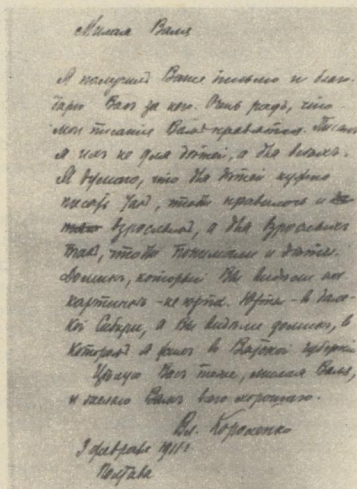 Милая Валя
Я получилъ Ваше письмо и благо-
дарю Васъ за него. Очень радъ, что
мои писания Вамъ нравятся. Писалъ
я ихъ не для дѣтей, а для всѣхъ.
Я думаю, что для дѣтей нужно
писать такъ, чтобы нравилось и
взрослымъ, а для взрослыхъ
такъ, чтобы понимали и дѣти.
Домикъ, который Вы видѣли на
картинкѣ - не юрта. Юрты - въ дале-
кой Сибири, а Вы видѣли домикъ, въ
которомъ я жилъ в Вятской губерніи
Цѣлую Васъ тоже, милая Валя,
и желаю Вамъ всего хорошаго.
Вл. Короленко
февраля
Полтава